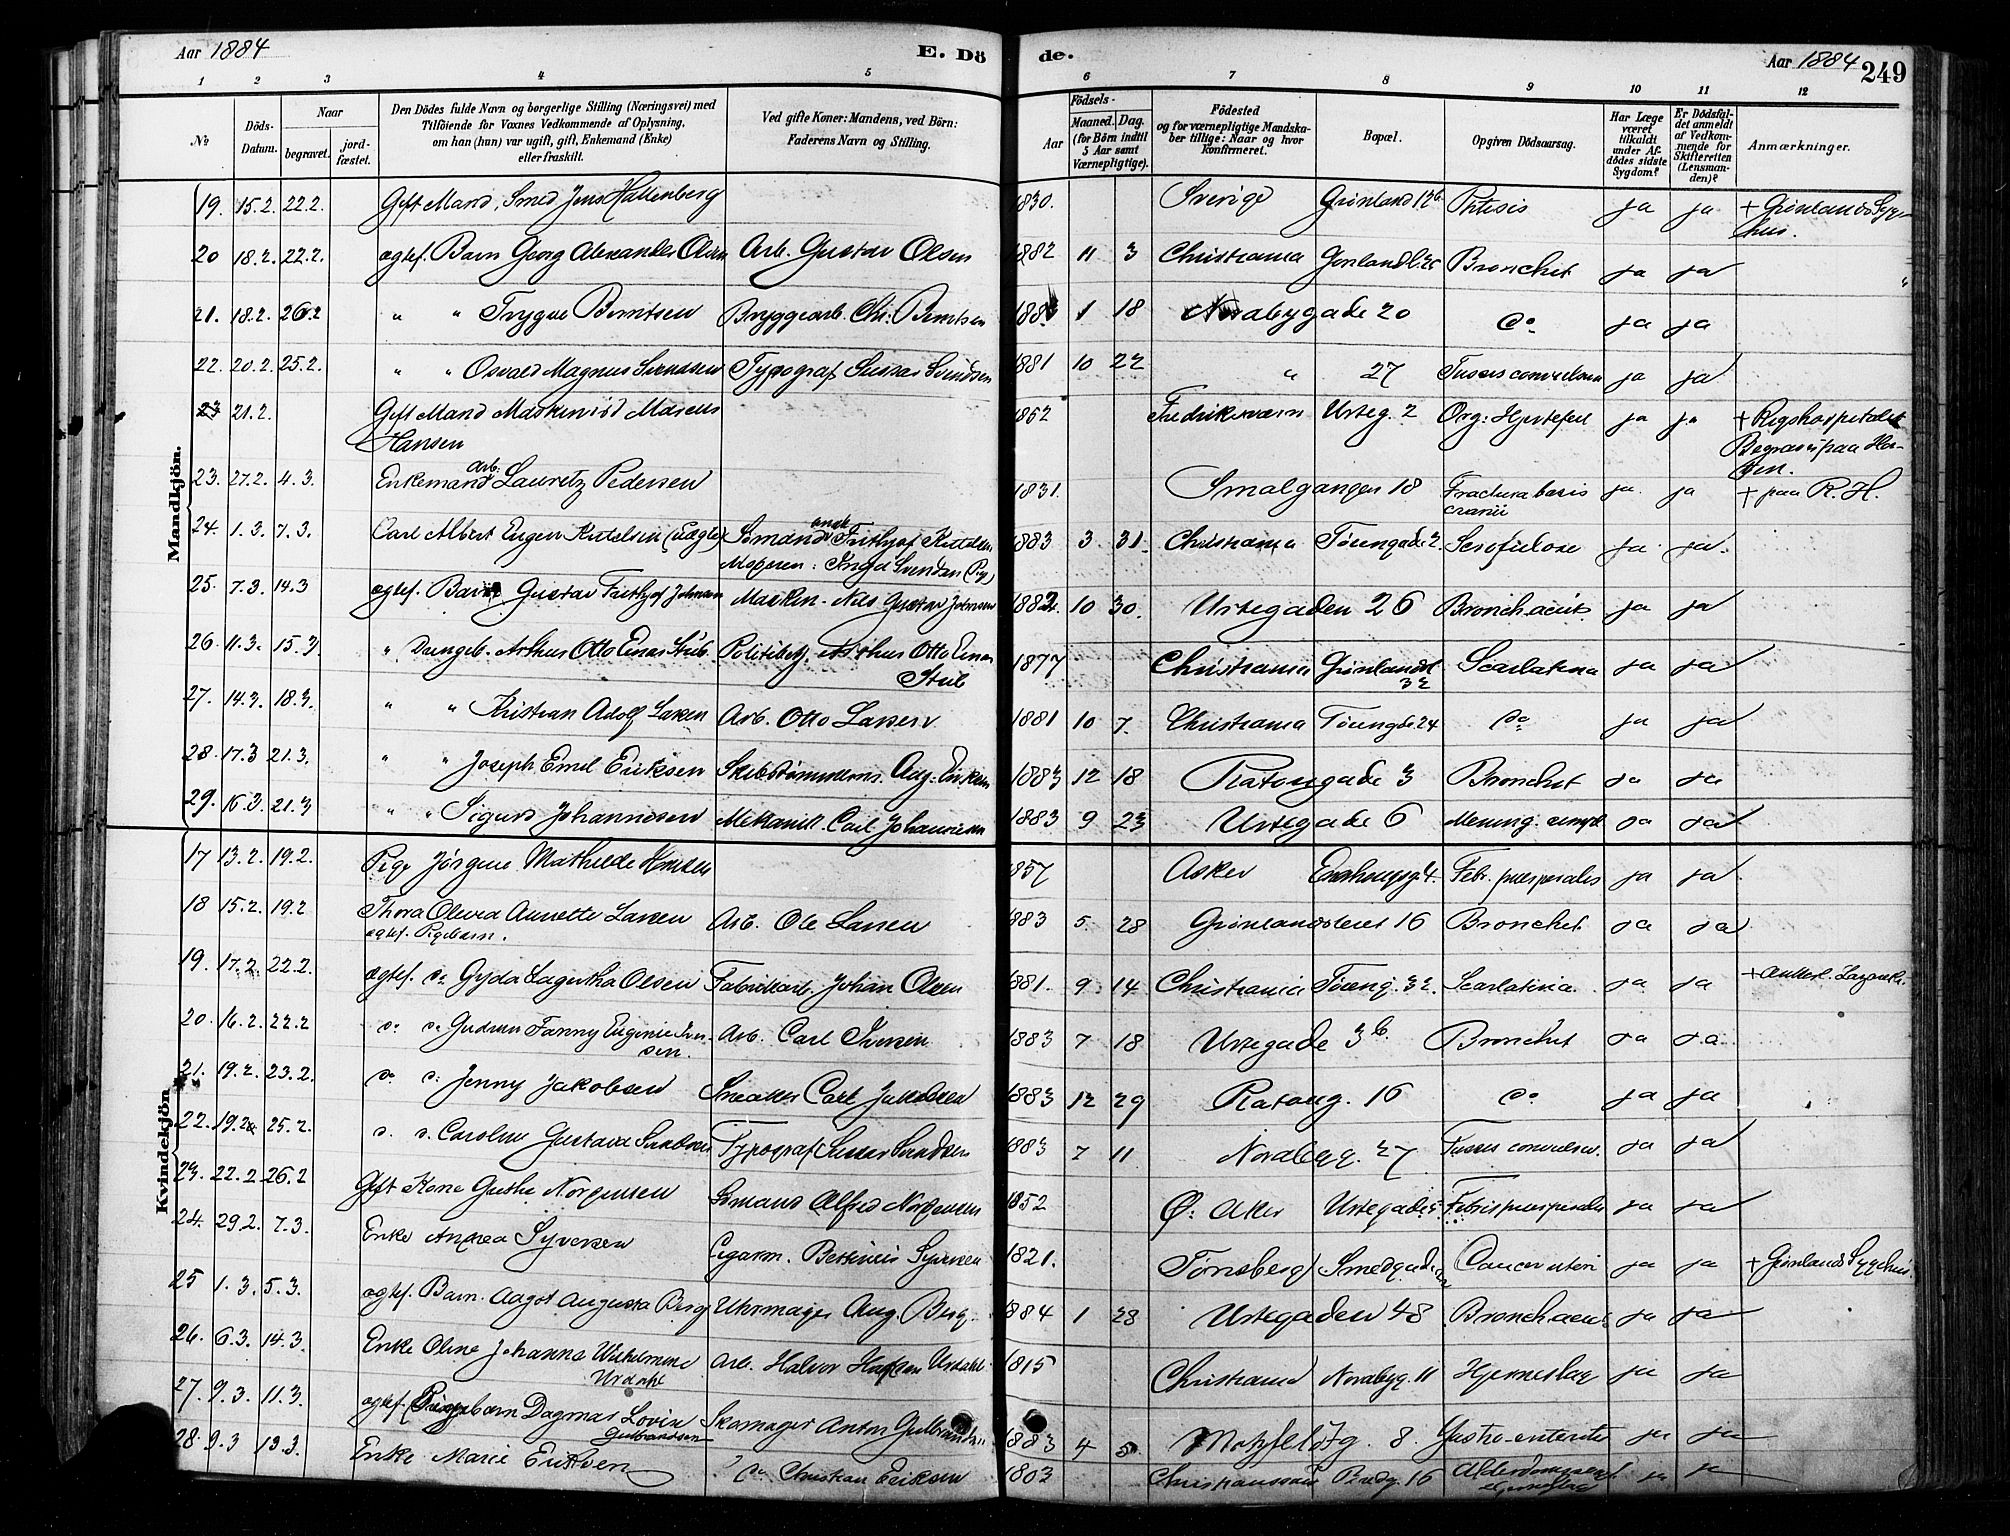 Aar 1884 E. Dö de. Aar 1884 249
1 2 3 4 5 6 7 8 9 10 11 12
№ Döds-Datum. Naar begravet. jord-fæstet. Den Dödes fulde Navn og borgerlige Stilling (Næringsvei) med Tilföiende for Voxnes Vedkommende af Oplysning, om han (hun) var ugift, gift, Enkemand (Enke) eller fraskilt. Ved gifte Koner: Mandens, ved Börn: Faderens Navn og Stilling. Aar Födsels- Maaned. Dag. (for Börn indtil 5 Aar samt Værnepligtige). Födested og for værnepligtige Mandskaber tillige: Naar og hvor konfirmeret. Bopæl. Opgiven Dödsaarsag. Har Læge været tilkaldt under Afdödes sidste Sygdom? Er Dödsfaldet anmeldt af Vedkommende for Skifteretten (Lensmanden)? Anmærkninger.
Mandkjön.
19. 15.2. 22.2. Gift Mand, Smed Jens Hallenberg 1830. Sverige Grønland 12b. Phtisis ja ja + Grønlands Syge-
hus.
20 18.2. 22.2. ægtef. Barn Georg Alexander Olsen Arb. Gustav Olsen 1882 11 3 Christiania Bronchit ja ja
21. 18.2. 26.2 " " Trygve Berntsen Bryggearb. Chr. Berntsen 1 18 Nordbygade 20 Do ja ja
22. 20.2. 25.2. " " Osvald Magnus Svendsen Typograf Svendsen 1881 10 22 " 27 Tussis convulsiva ja ja
23 21.2. Gift Mand Maskinist Marcus 1852 Fredriksværn Urteg. 2 Org: Hjertefeil ja ja + Rigshospitalet
Hansen Begraves paa Hor-
ten.
23. 27.2. 4.3. Enkemand Arb: Lauritz Pedersen 1831. Smalgangen 18 Fractura basis ja ja + paa R. H.
cranii
24. 1.3. 7.3. Carl Albert Eugen Kittelsen (Uægte) Sømand Frithjof Kittelsen 1883 3 31. Christiania Tøiengade 2 Scrofulose ja ja.
Moderen: Svendsen
25. 7.3. 14.3 ægtef. Barn Gustav Frithjof Johnsen Maskin. Nils Gustav Johnsen 1882. 10 30. Urtegaden 26 ja ja
26 11.3. 15.3 " Drengeb. Arthur Otto Einar Stub Politibetj. Arthur Otto Einar 1877 Christiania Grønlandsl Scarlatina ja ja
Stub 32
27. 14.3. 18.3. " " Kristian Adolf Larsen Arb. Otto Larsen 1881 10 7. Christiania Tøiengde 24 Do ja ja
28. 17.3 21.3. " " Joseph Emil Eriksen Skibstømmerm. Aug. Eriksen 1883 12 18 Platougade 3 Bronchit ja ja
29. 16.3. 21.3 " " Sigurd Johannesen Mekanik. Carl Johannesen 1883 9 23 Urtegade 6 Mening. ja ja
Kvindekjön
17 13.2. 19.2. Pige Jørgine Mathilde 1857 Asker Febr. puerperalis ja ja
18 15.2. 19.2 Thora Oleva Annette Larsen Arb. Ole Larsen 1883 5. 28 Grønlandsleret 16 Bronchit. ja ja
ægtef. Pigebarn.
19. 17.2. 22.2. ægtef. do Gyda Lagertha Olsen Fabrikarb. Johan Olsen 1881. 9 14 Christiania Tøieng. 32. Scarlatina. ja ja
20. 16.2. 22.2 do do Gudrun Fanny Eugenie Iver- Arb. Carl Iversen 1883 7 18 Urtegade 3b Bronchit ja ja
sen.
21. 19.2. 23.2. do do Jenny Jakobsen Snedker Carl Jakobsen 1883 12 29 Platoug. 16 Do ja ja
22. 19.2 25.2. do do Caroline Gustava Svendsen Typograf Svendsen 1883 7 11 Nordbygg. 27 Tussis convulsiv. ja ja
23. 22.2 26.2 Gift Kone Grethe Norgensen Sømand Alfred Norgensen 1852 Ø: Aker Urtegade 5 Febris puerperalis ja ja
24. 29.2. 7.3. Enke Andrea Syversen Cigarm. Syversen 1821. Tønsberg Smedgaden Cancer uteri ja ja + Grønlands Sygehus.
25 1.3. 5.3. ægtef. Barn. Aagot Augusta Berg Uhrmager Aug. Berg. 1884 1 28 Urtegaden 48 ja ja
26. 6.3. 14.3. Enke Oline Johanne Wilhelmine Arb. Halvor Urdahl 1815 Christiania Nordbyg. 11 Hjerneslag ja ja
Urdahl
27. 9.3. 11.3. ægtef. Pigebarn Dagmar Lovise Skomager Anton Gulbrandsen 1883 4 5 8. Gastro-enterite ja ja
Gulbrandsen
28. 9.3 13.3. Enke Marie Eriksen Do Christian Eriksen 1803 Christianssand Bredg. 16 ja ja